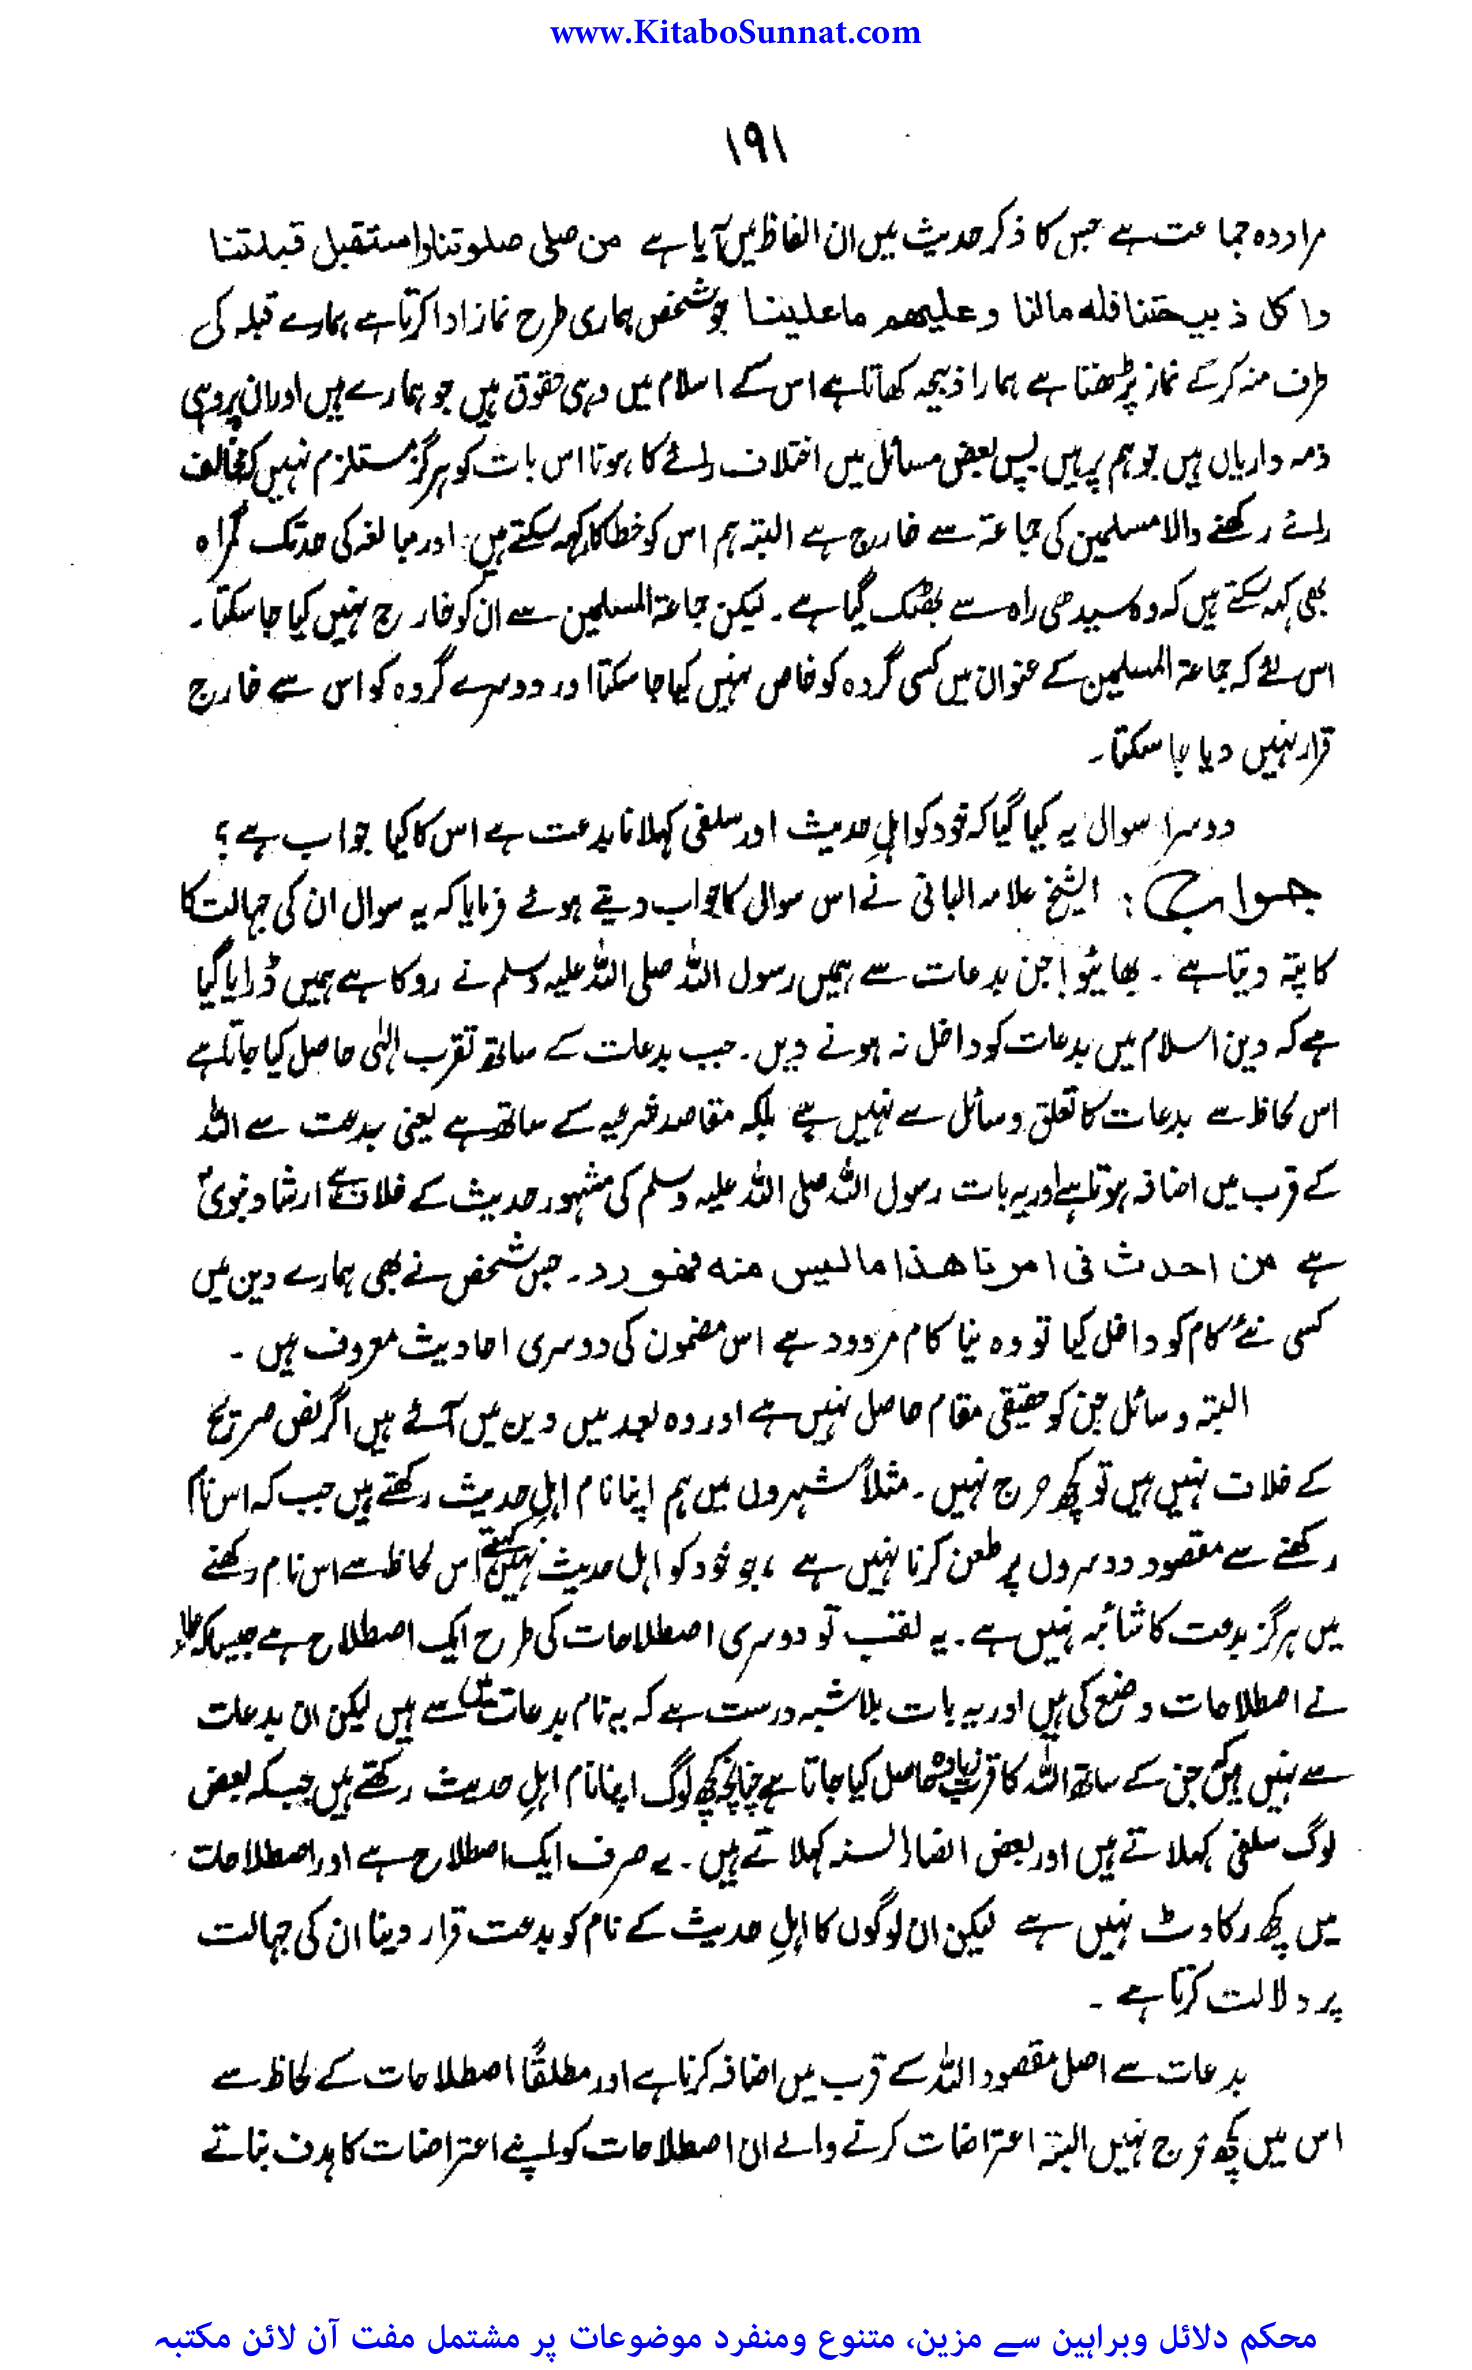 www.KitaboSunnat.com
۱۹۱
مراد وہ جماعت ہے جس کا ذکر حدیث میں ان الفاظ میں آیا ہے من صلی صلوتنا واستقبل قبلتنا
واکل ذبیحتنا فلہ مالنا وعلیھم ماعلینا جو شخص ہماری طرح نماز ادا کرتا ہے ہمارے قبلہ کی
طرف منہ کرکے نماز پڑھتا ہے ہمارا ذبیحہ کھاتا ہے اس کے اسلام میں وہی حقوق ہیں جو ہمارے ہیں اور ان پر وہی
ذمہ داریاں ہیں جو ہم پر ہیں پس بعض مسائل میں اختلاف رائے کا ہونا اس بات کو ہرگز مستلزم نہیں کہ مخالف
رائے رکھنے والا مسلمین کی جماعۃ سے خارج ہے البتہ ہم اس کو خطاکار کہہ سکتے ہیں اور مبالغہ کی حد تک گمراہ
بھی کہہ سکتے ہیں کہ وہ سیدھی راہ سے بھٹک گیا ہے۔ لیکن جماعۃ المسلمین سے ان کو خارج نہیں کیا جا سکتا۔
اس لئے کہ جماعۃ المسلمین کے عنوان میں کسی گروہ کو خاص نہیں کیا جا سکتا اور دوسرے گروہ کو اس سے خارج
قرار نہیں دیا جا سکتا۔
دوسرا سوال یہ کیا گیا کہ خود کو اہلِ حدیث اور سلفی کہلانا بدعت ہے اس کا کیا جواب ہے؟
جواب: الشیخ علامہ البانی نے اس سوال کا جواب دیتے ہوئے فرمایا کہ یہ سوال ان کی جہالت کا
کا پتہ دیتا ہے۔ بھائیو! جن بدعات سے ہمیں رسول اللہ صلی اللہ علیہ وسلم نے روکا ہے ہمیں ڈرایا گیا
ہے کہ دین اسلام میں بدعات کو داخل نہ ہونے دیں۔ جب بدعات کے ساتھ تقرب الٰہی حاصل کیا جاتا ہے
اس لحاظ سے بدعات کا تعلق وسائل سے نہیں ہے بلکہ مقاصد شرعیہ کے ساتھ ہے یعنی بدعت سے اللہ
کے قرب میں اضافہ ہوتا ہے اور یہ بات رسول اللہ صلی اللہ علیہ وسلم کی مشہور حدیث کے خلاف ہے ارشاد نبویؐ
ہے من احدث فی امرنا ھذا مالیس منہ فھو رد۔ جس شخص نے بھی ہمارے دین میں
کسی نئے کام کو داخل کیا تو وہ نیا کام مردود ہے اس مضمون کی دوسری احادیث معروف ہیں۔
البتہ وسائل جن کو حقیقی مقام حاصل نہیں ہے اور وہ بعد میں دین میں آئے ہیں اگر نص صریح
کے خلاف نہیں ہیں تو کچھ حرج نہیں۔ مثلاً شہروں میں ہم اپنا نام اہلِ حدیث رکھتے ہیں جب کہ اس نام
رکھنے سے مقصود دوسروں پر طعن کرنا نہیں ہے، جو خود کو اہل حدیث نہیں کہتے اس لحاظ سے اس نام رکھنے
میں ہرگز بدعت کا شائبہ نہیں ہے۔ یہ لقب تو دوسری اصطلاحات کی طرح ایک اصطلاح ہے جیسا کہ علماء
نے اصطلاحات وضع کی ہیں اور یہ بات بلاشبہ درست ہے کہ یہ نام بدعات میں سے ہیں لیکن ان بدعات
سے نہیں ہیں کہ جن کے ساتھ اللہ کا قرب زیادہ حاصل کیا جاتا ہے چنانچہ کچھ لوگ اپنا نام اہلِ حدیث رکھتے ہیں جبکہ بعض
لوگ سلفی کہلاتے ہیں اور بعض انصار السنہ کہلاتے ہیں۔ یہ صرف ایک اصطلاح ہے اور اصطلاحات
میں کچھ رکاوٹ نہیں ہے لیکن ان لوگوں کا اہلِ حدیث کے نام کو بدعت قرار دینا ان کی جہالت
پر دلالت کرتا ہے۔
بدعات سے اصل مقصود اللہ کے قرب میں اضافہ کرنا ہے اور مطلقًا اصطلاحات کے لحاظ سے
اس میں کچھ حرج نہیں البتہ اعتراضات کرنے والے ان اصطلاحات کو اپنے اعتراضات کا ہدف بناتے
محکم دلائل وبراہین سے مزین، متنوع ومنفرد موضوعات پر مشتمل مفت آن لائن مکتبہ